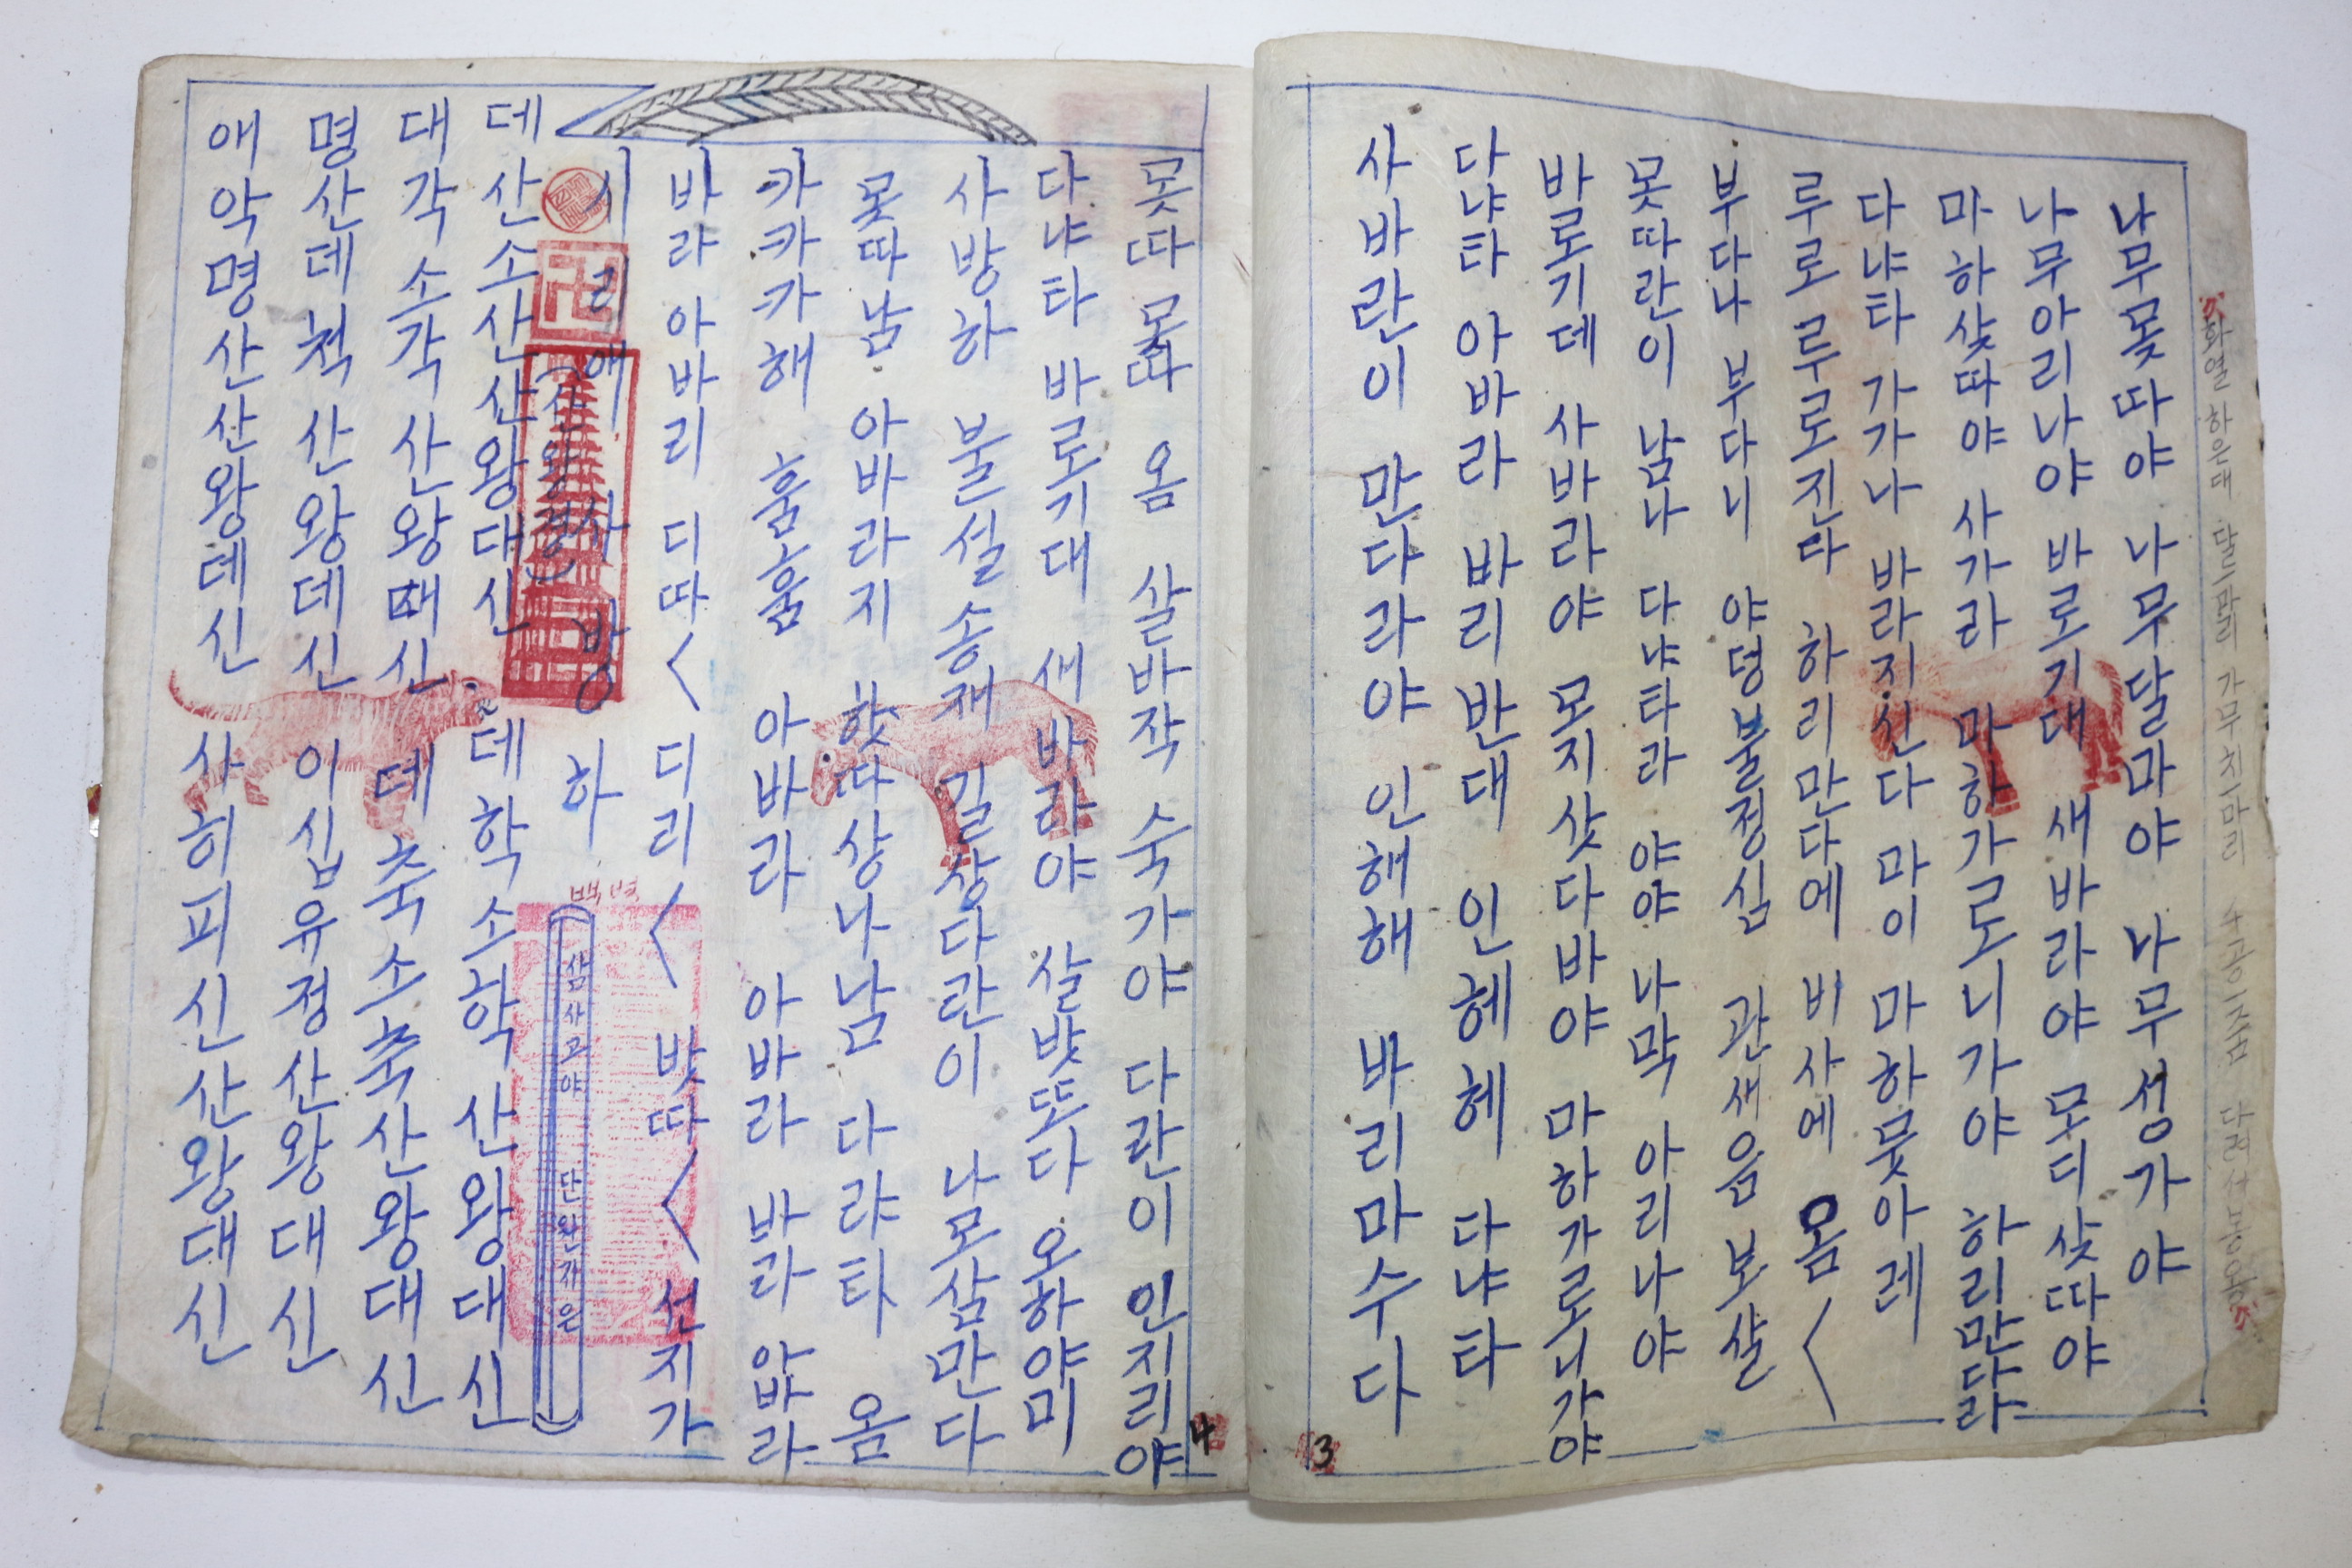 나무못따야 나무달마야 나무성가야
나무아리나야 바로기대 새바라야 모디삿따야
마하삿따야 사가라 마하가로니가야 하리만다라
다냐타 가가나 바라지신다 마이 마하뭇아레
루로루로진다 하리만다에 비사에 옴〱
부다나 부다니 야덩불정심 관새음 보살
못따란이 남나 다냐타라 야야 나막 아리나야
바로기데 사바라야 모지삿다바야 마하가로니가야
다냐타 아바라 바리반대 인혜혜 다냐타
사바란이 만다라야 인해해 바리마수다
3
못따 못따 옴 살바작 수가야 다란이 인지리야
다냐타 바로기대 새바라야 살밧또다 오하야미
사방하 불설송재 길상다란이 나모삼만다
못따남 아바라지 핫다상나남 다랴타 옴
카카카해 훔훔 아바라 아바라 바라아바라
바라아바리 디따〱 디리〱 밧따〱 선지가
시리애 사방하
(산왕경)
백번
삼사고야 단완개은
데산소산산왕대신 데학소학산왕대신
대각소각산왕대신 데축소축산왕대신
명산데척산왕데신 이십유정산왕대신
애악명산산왕데신 사히피신산왕대신
4